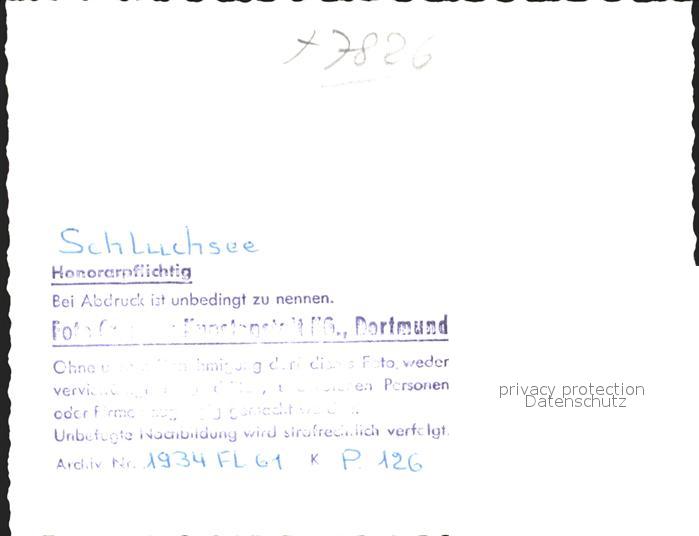 +7826
Schluchsee
Honorarpflichtig
Bei Abdruck ist unbedingt zu nennen.
Foto KG., Dortmund
Ohne darf dieses Foto, weder
Personen
oder Firmen gemacht werden.
Unbefugte Nachbildung wird strafrechtlich verfolgt.
Archiv Nr. 1934 FL 61 K P. 126
privacy protection
Datenschutz